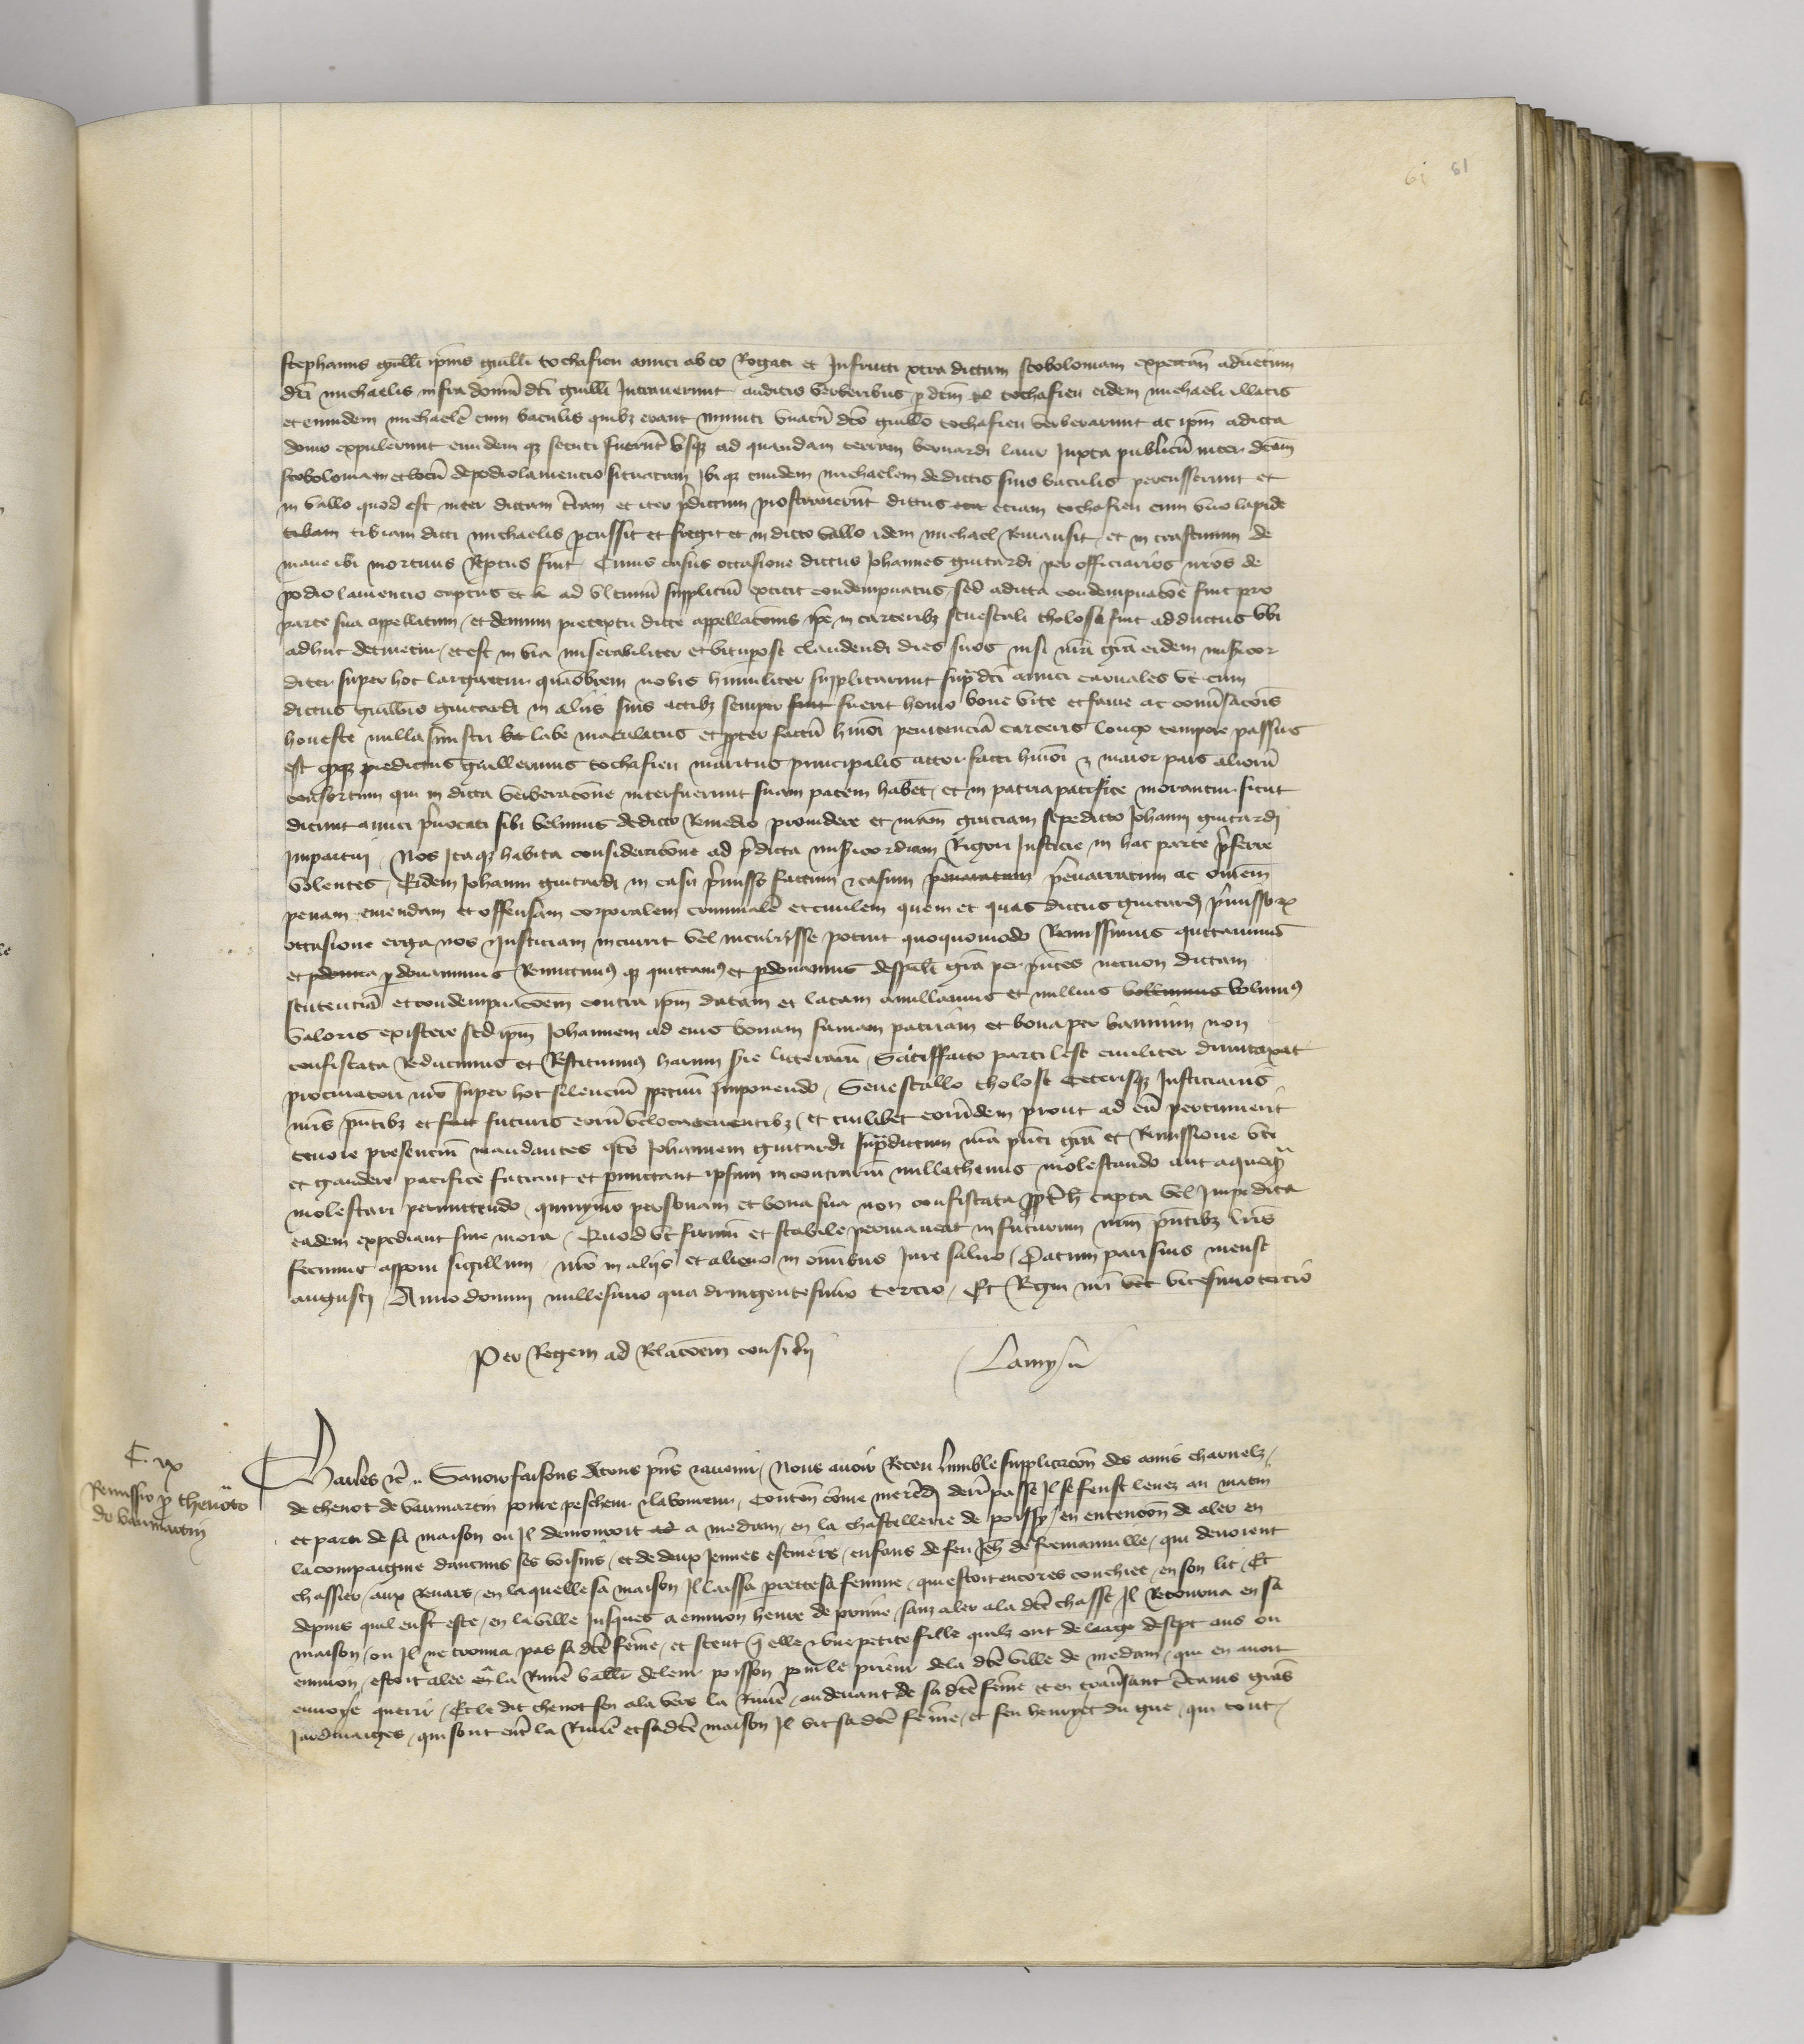 61 61
stephanus guilli ipius guilli tochafieu amici ab eo Rogati et Instructi extra dictam scobolomam expectan aduentum
dci michaelis infra domu dci guilli Intrauerunt audicis verberibus p dcm tochafieu eidem michaeli illatis
et eumdem michaele cum baculis quibz erant muniti vnacu dco guillo tochafieu verberarunt ac ipm a dicta
domo expulerunt eumdem qz secuti fuerut vsqz ad quandam terram bernardi laur Juxta publicu iter dcam
scobolomam et locu de podiolaurencio situatam Ibi qz eumdem michaelem de dictis suis baculis percusserunt et
in vallo quod est inter dictam tram et iter pdictum prostrauerut dictus etiam tochafieu cum vno lapide
tibiam dicti michaelis pcussit et fregit et in dicto vallo idem michael Remansit et in crastinum de
mane ibi mortuus Reptus fuit Cuius casus occasione dictus Johannes guitardi per officiarios nros de
podio laurencio captus et ad vltimu suppliciu extitit condempnatus sed a dicta condempnacoe fuit pro
parte sua appellatum et demum pretextu dicte appellacois ipe in carceribz senescali tholose fuit adductus vbi
adhuc detinetur et est in via miserabiliter et vitupose claudendi dies suos nisi nra gra eidem misericor
diter super hoc largiretur quaobrem nobis humiliter supplicarunt supdci amici carnales vt cum
dictus guillms guitardi in aliis suis actibz semper fuerit homo bone vite et fame ac conusacois
honeste nulla sinistri labe maculatus et ppter factu hmoi penitencia carceris longo tempore passus
est qz predictus guillermus tochafieu maritus principalis actor facti hmoi et maior pars alioru
consortum qui in dicta verberacone interfuerunt suam pacem habet et in patria pacifice morantur sicut
dicunt amici pvocati sibi velimus de dicto Remedio prouidere et nram graciam sepedicto Johanni guitardi
Impartiri Nos Itaqz habita consideracone ad pdicta misericordiam Rigori Justicie in hac parte pferre
volentes Eidem Johanni guitardi in casu pmisso factum et casum penarratum ac omem
penam emendam et offensam corporalem criminale et ciuilem quem et quas dictus guitardi pmissor
occasione erga nos et Justiciam incurrit vel incurrisse potuit quoquomodo Remissimus quittauimus
et pdonauimus Remittimus qz quittamus et pdonamus de speali gra per pntes necnon dictam
sentencia et condempnacoem contra ipm datam et latam anullamus et nullius volumus
valoris existere sed ipm Johannem ad eius bonam famam patriam et bona per bannum non
confiscata Reducimus et Restituimus harum serie literaru Satisffacto parti lese ciuiliter dumtaxat
procuratori nro super hoc silenciu ppetuu Imponendo Senescallo tholose Ceterisqz Justiciariis
nris pntibz et futuris eoru velocatenentibz et cuilibet eorudem prout ad eu pertinuerit
tenore presenciu mandantes qts Johannem guitardi supdictum nra pnti gra et Remissione vti
et gaudere pacifice faciant et pmittant ipsum in contrariu nullathenus molestando aut a quoqz
molestari permittendo quinymo personam et bona sua non confiscata ppt h capta vel Impedita
eadem expediant sine mora Quod vt firmu et stabile permaneat in futurum nrm pntibz lris
fecimus apponi sigillum nro in aliis et alieno in omibus Jure saluo Datum parisius mense
augusti Anno domini millesimo quadringentesimo tercio Et Regni nri vicesimotercio
Per Regem ad Relacoem consilii Lamysu
C ix
Remissio p thenoto
de vaumartin
Charles etc Sauoir faisons a tous pns et auenir Nous auoir Receu humble supplicacon des amis charnelz
de thenot de vaumartin poure pescheur et laboureur Conten come mercredi derr passe Il se feust leuez au matin
et parti de sa maison ou Il demouroit a medam en la chastellerie de poissy en entencon de aler en
la compaignie daucuns ses voisins et de deux Jeunes escuiers enfans de feu Jeh de fremanuille qui deuoient
chassier aux Renars en laquelle sa maison Il laissa prette sa femme qui estoit encores couchiee en son lit Et
depuis quil eust este en la ville Jusques a enuiron heure de prime sanz aler a la dte chasse Il Retourna en sa
maison ou Il ne trouua pas sa dte feme et sceut q elle et vne petite fille quilz ont de laage de sept ans ou
enuiron estoit alee en la Riuie baillr de leur poisson pour le prieur de la dte ville de medam qui en auoit
enuoye querir Et le dit thenot sen ala vers la Riuie au deuant de sa dte feme et en trauersant certains grans
Jardinaiges qui sont entre la Riuie et sa dte maison Il vit sa dte feme et feu henryet du gue qui tout